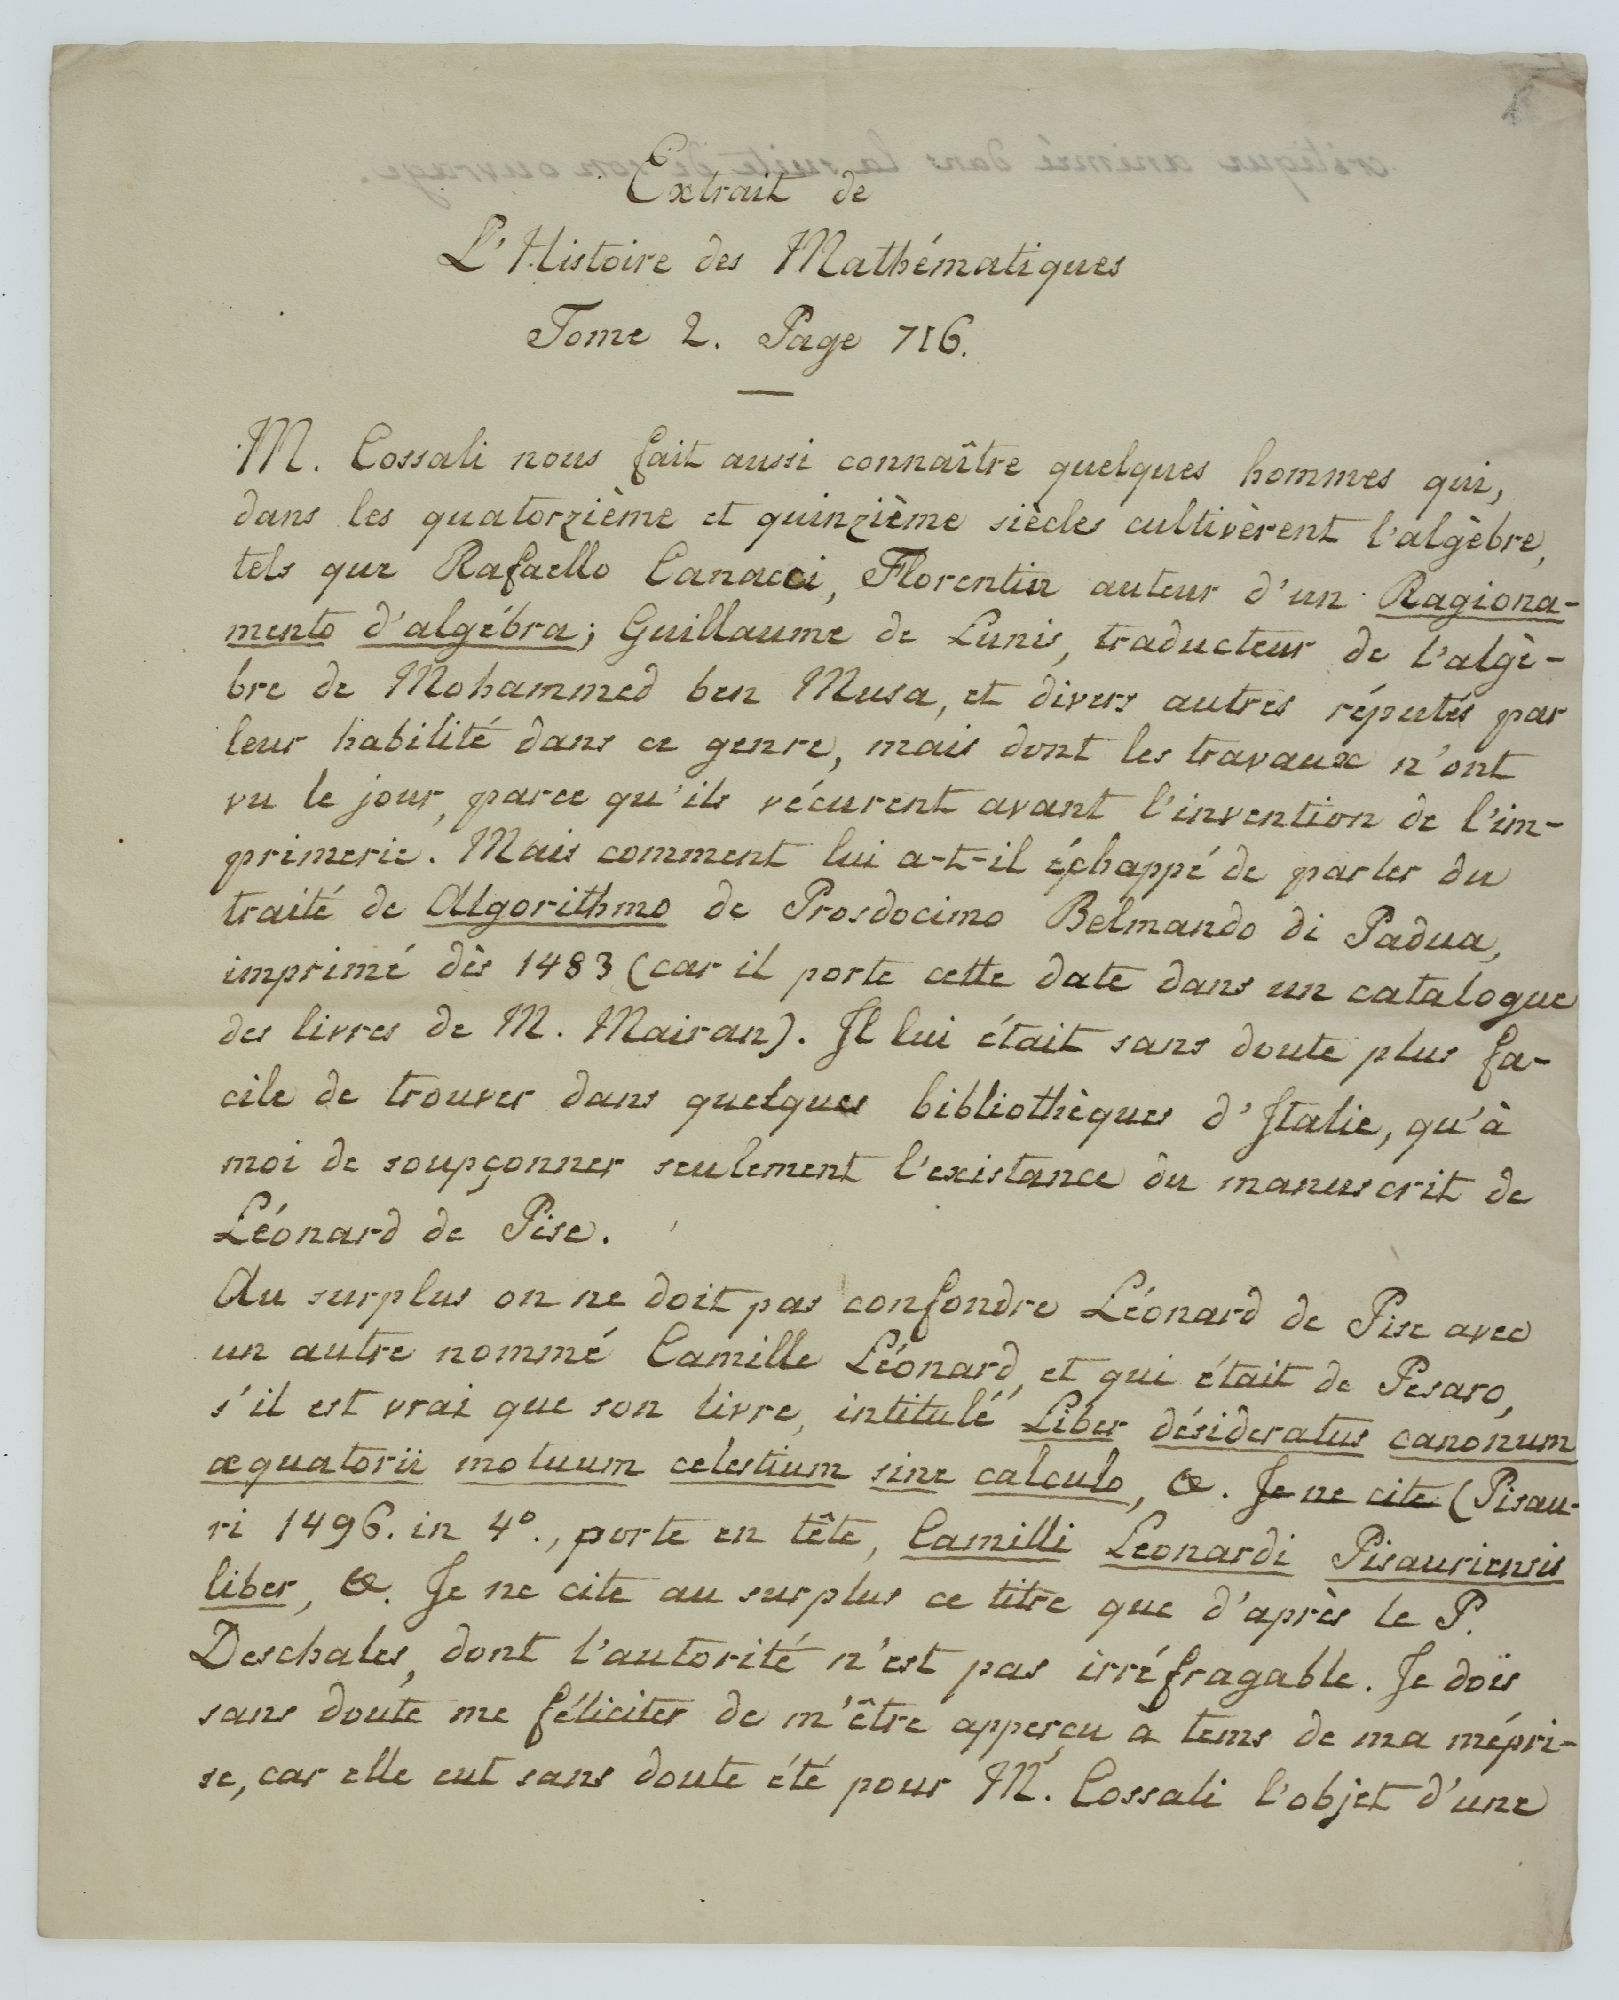 Extrait de
L'Histoire des Mathématiques
Tome 2. Page 716.
M. Cossali nous fait aussi connaître quelques hommes qui,
dans les quatorzième et quinzième siècles cultivèrent l'algèbre,
tels que Rafaello Canacci, Florentin auteur d'un Ragiona-
mento d'algébra; Guillaume de Lunis, traducteur de l'algè-
bre de Mohammed ben Musa, et divers autres réputés par
leur habilité dans ce genre, mais dont les travaux n'ont
vu le jour, parce qu'ils vécurent avant l'invention de l'im-
primerie. Mais comment lui a-t-il échappé de parler du
traité de Algorithmo de Prosdocimo Belmando di Padua,
imprimé dès 1483 (car il porte cette date dans un catalogue
des livres de M. Mairan). Il lui était sans doute plus fa-
cile de trouver dans quelques bibliothèques d'Italie, qu'à
moi de soupçonner seulement l'existance du manuscrit de
Léonard de Pise.
Au surplus on ne doit pas confondre Léonard de Pise avec
un autre nommé Camille Léonard, et qui était de Pesaro,
s'il est vrai que son livre, intitulé Liber désideratus canonum
æquatorii motuum celestium sine calculo, &. Je ne cite (Pisau-
ri 1496. in 4°., porte en tête, Camilli Leonardi Pisauriensis
liber, &. Je ne cite au surplus ce titre que d'après le P.
Deschales, dont l'autorité n'est pas irréfragable. Je dois
sans doute me féliciter de m'être apperçu a tems de ma mépri-
se, car elle eut sans doute été pour M. Cossali l'objet d'une
critique animée dans la suite de son ouvrage.